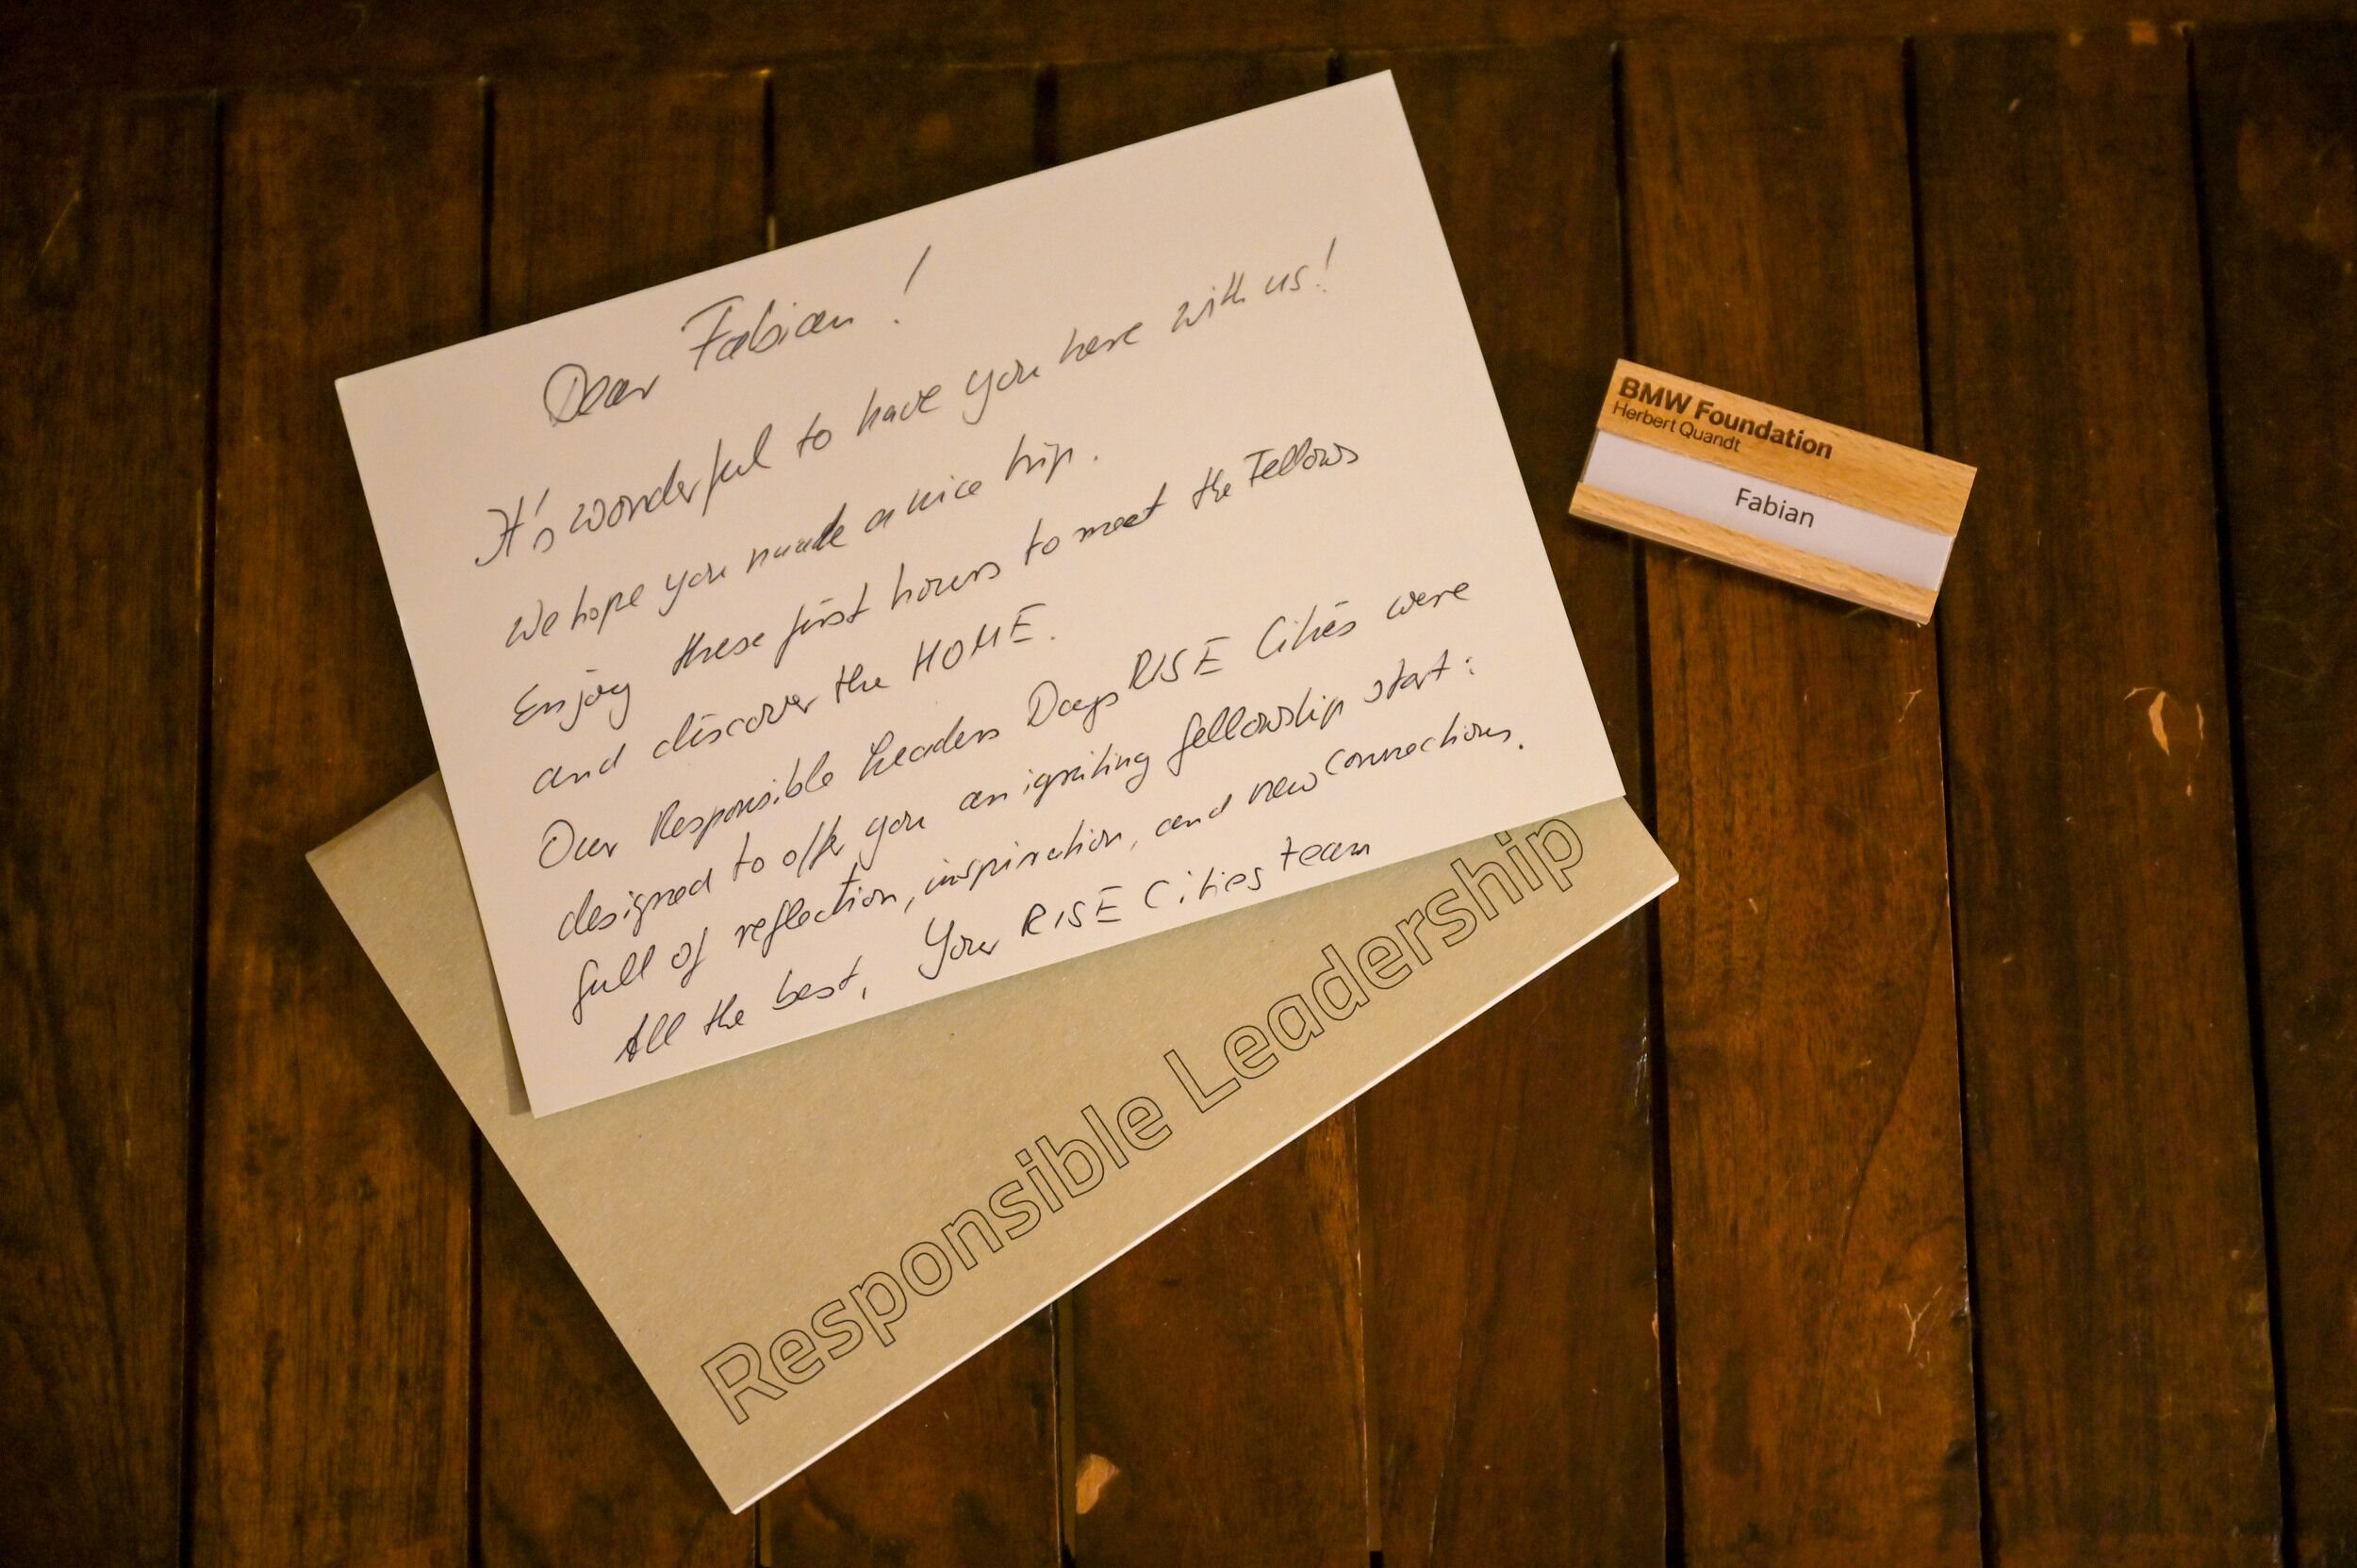 Dear Fabian!
It's wonderful to have you here with us!
We hope you made a nice trip.
Enjoy these first hours to meet the Fellows
and discover the HOME.
Our Responsible Leaders Days RISE Cities were
designed to offer you an igniting fellowship start:
full of reflection, inspiration, and new connections.
All the best, Your RISE Cities team
BMW Foundation
Herbert Quandt
Fabian
Responsible Leadership